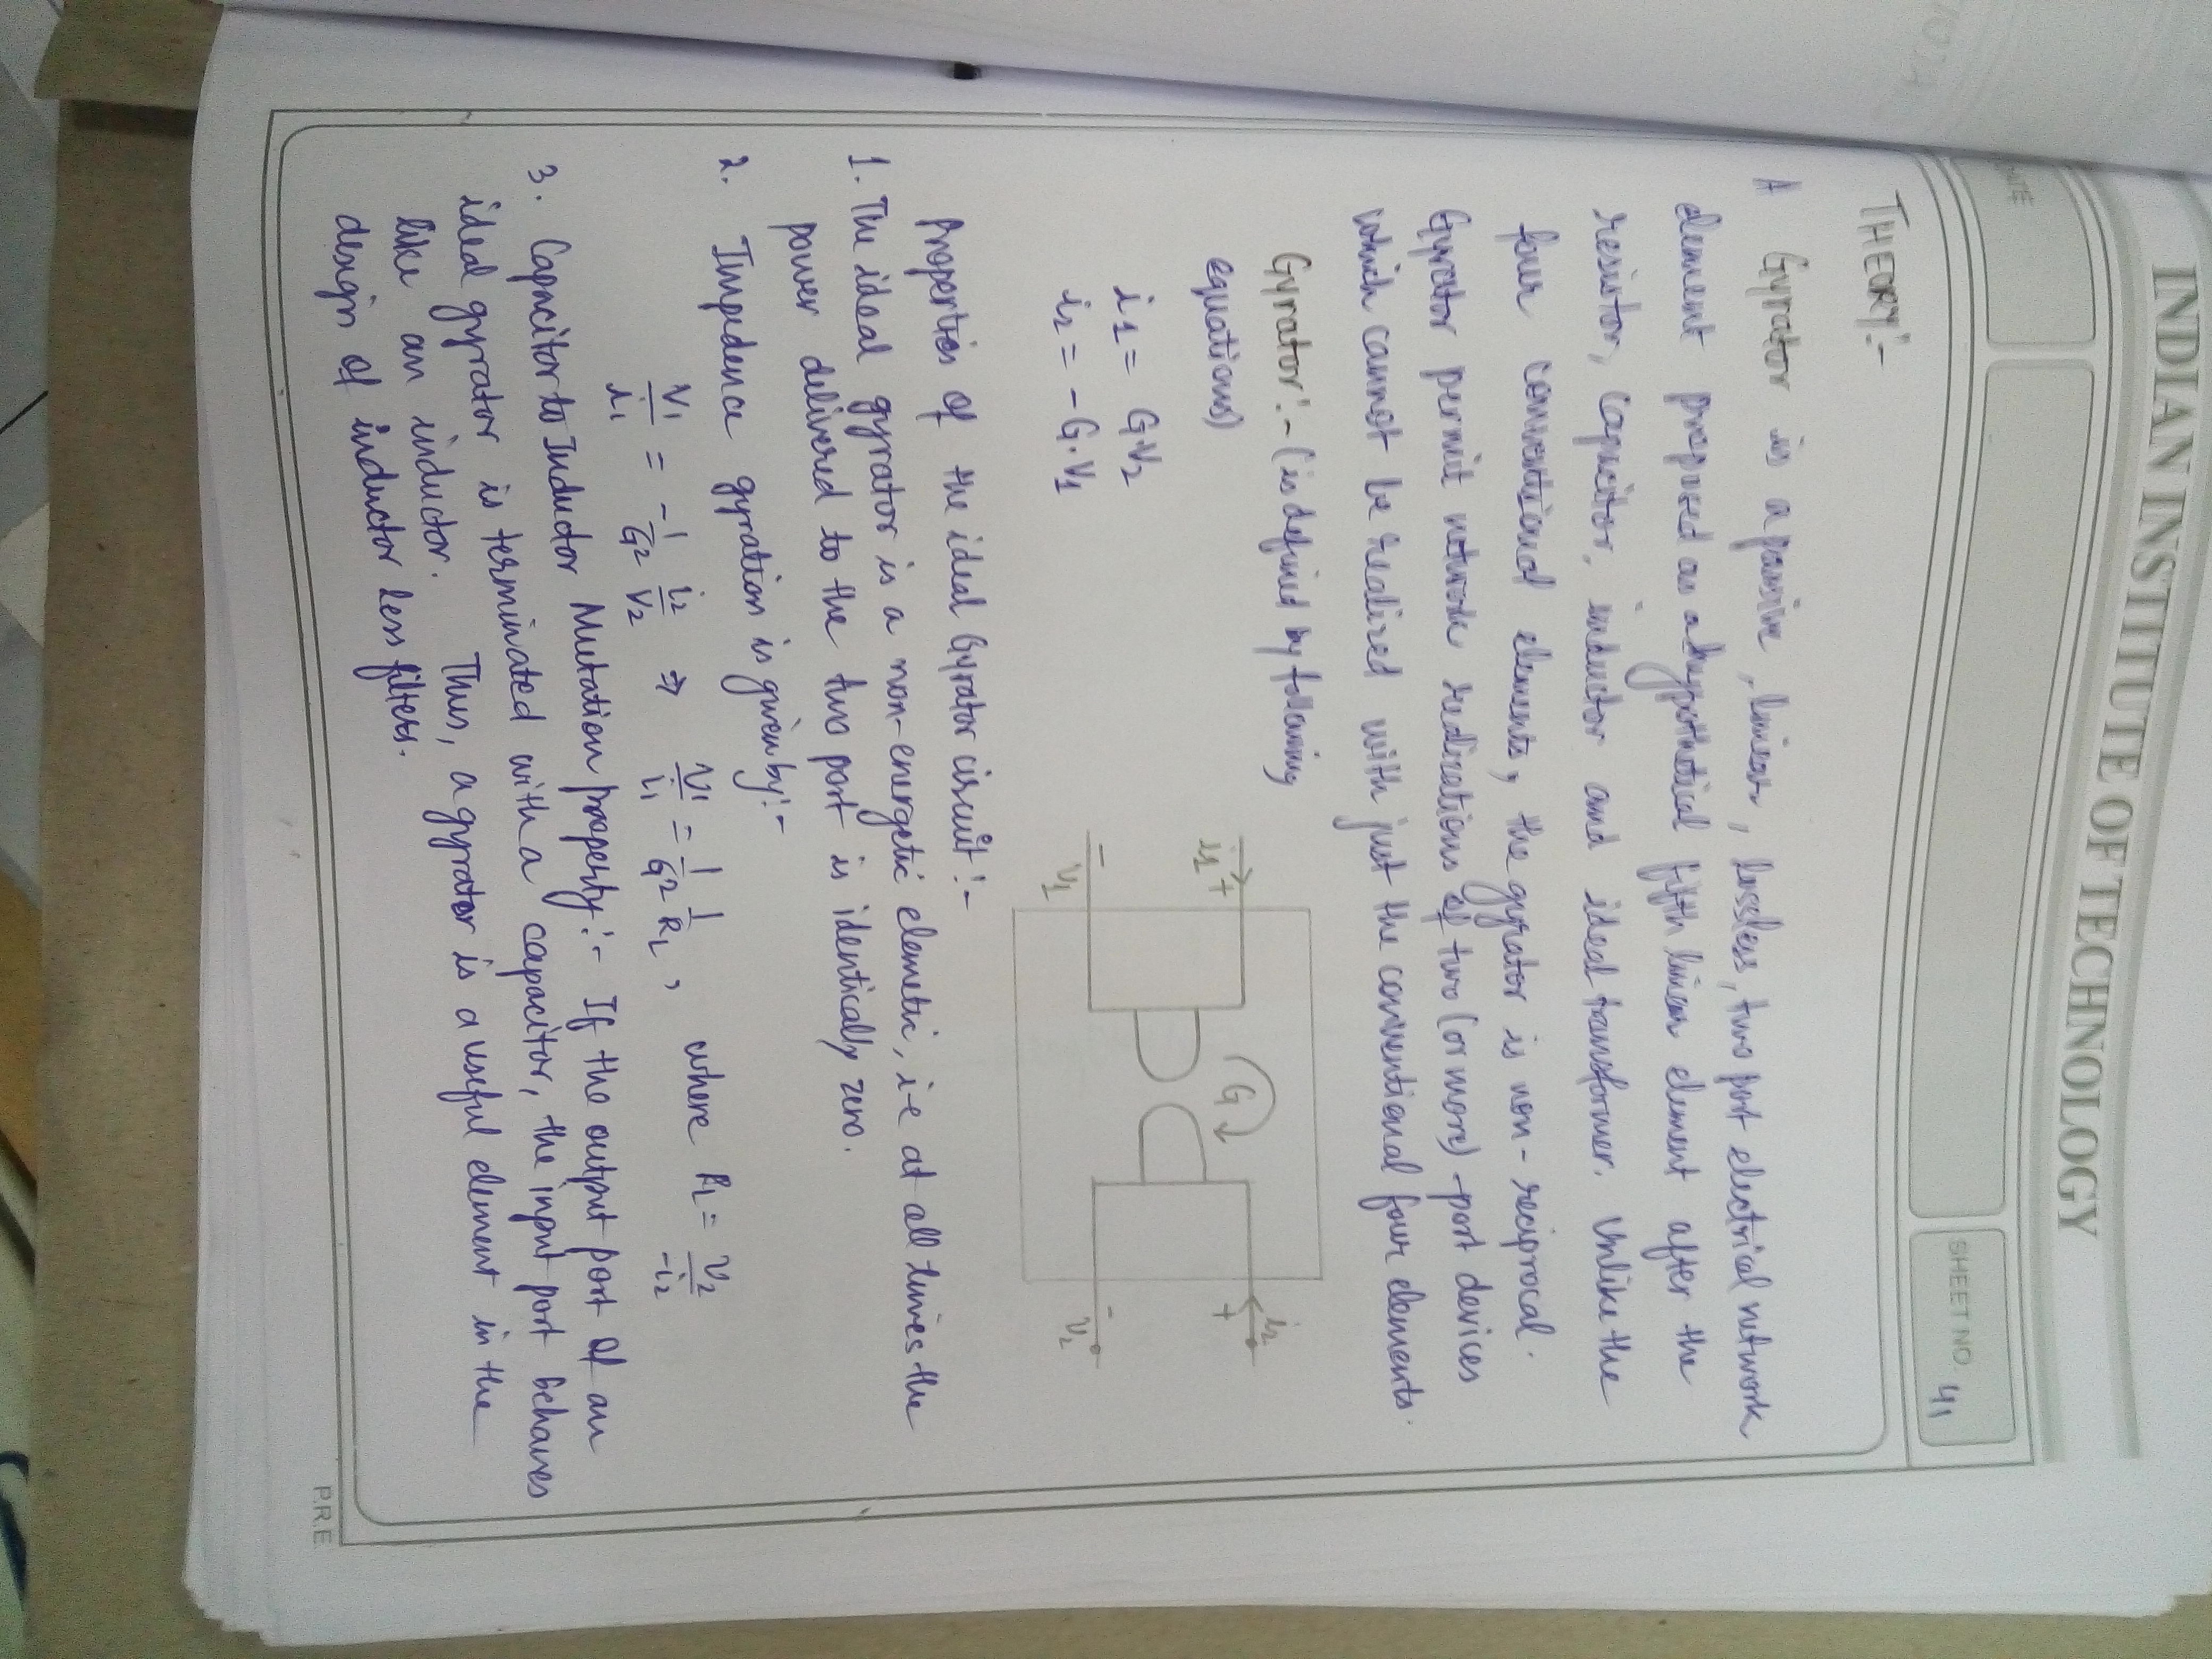 INDIAN INSTITUTE OF TECHNOLOGY
DATE
SHEET NO. 41
THEORY:-
A Gyrator is a passive, linear, lossless, two port electrical network
element proposed as a hypothetical fifth linear element after the
resistor, capacitor, inductor and ideal transformer. Unlike the
four conventional elements, the gyrator is non-reciprocal.
Gyrator permit network realizations of two (or more) -port devices
which cannot be realized with just the conventional four elements.
Gyrator:- (is defined by following
equations)
i1 = G.V2
i2 = -G.V1
i1 +
G
i2
+
-
V1
-
V2
Properties of the ideal Gyrator circuit:-
1. The ideal gyrator is a non-energetic elemetic, i-e at all times the
power delivered to the two port is identically zero.
2. Impedence gyration is given by:-
V1/i1 = -1/G² i2/V2 ⇒ V1/i1 = 1/G² 1/RL, where RL = V2/-i2
3. Capacitor to Inductor Mutation property:- If the output port of an
ideal gyrator is terminated with a capacitor, the input port behaves
like an inductor. Thus, a gyrator is a useful element in the
design of inductor less filters.
P.R.E.